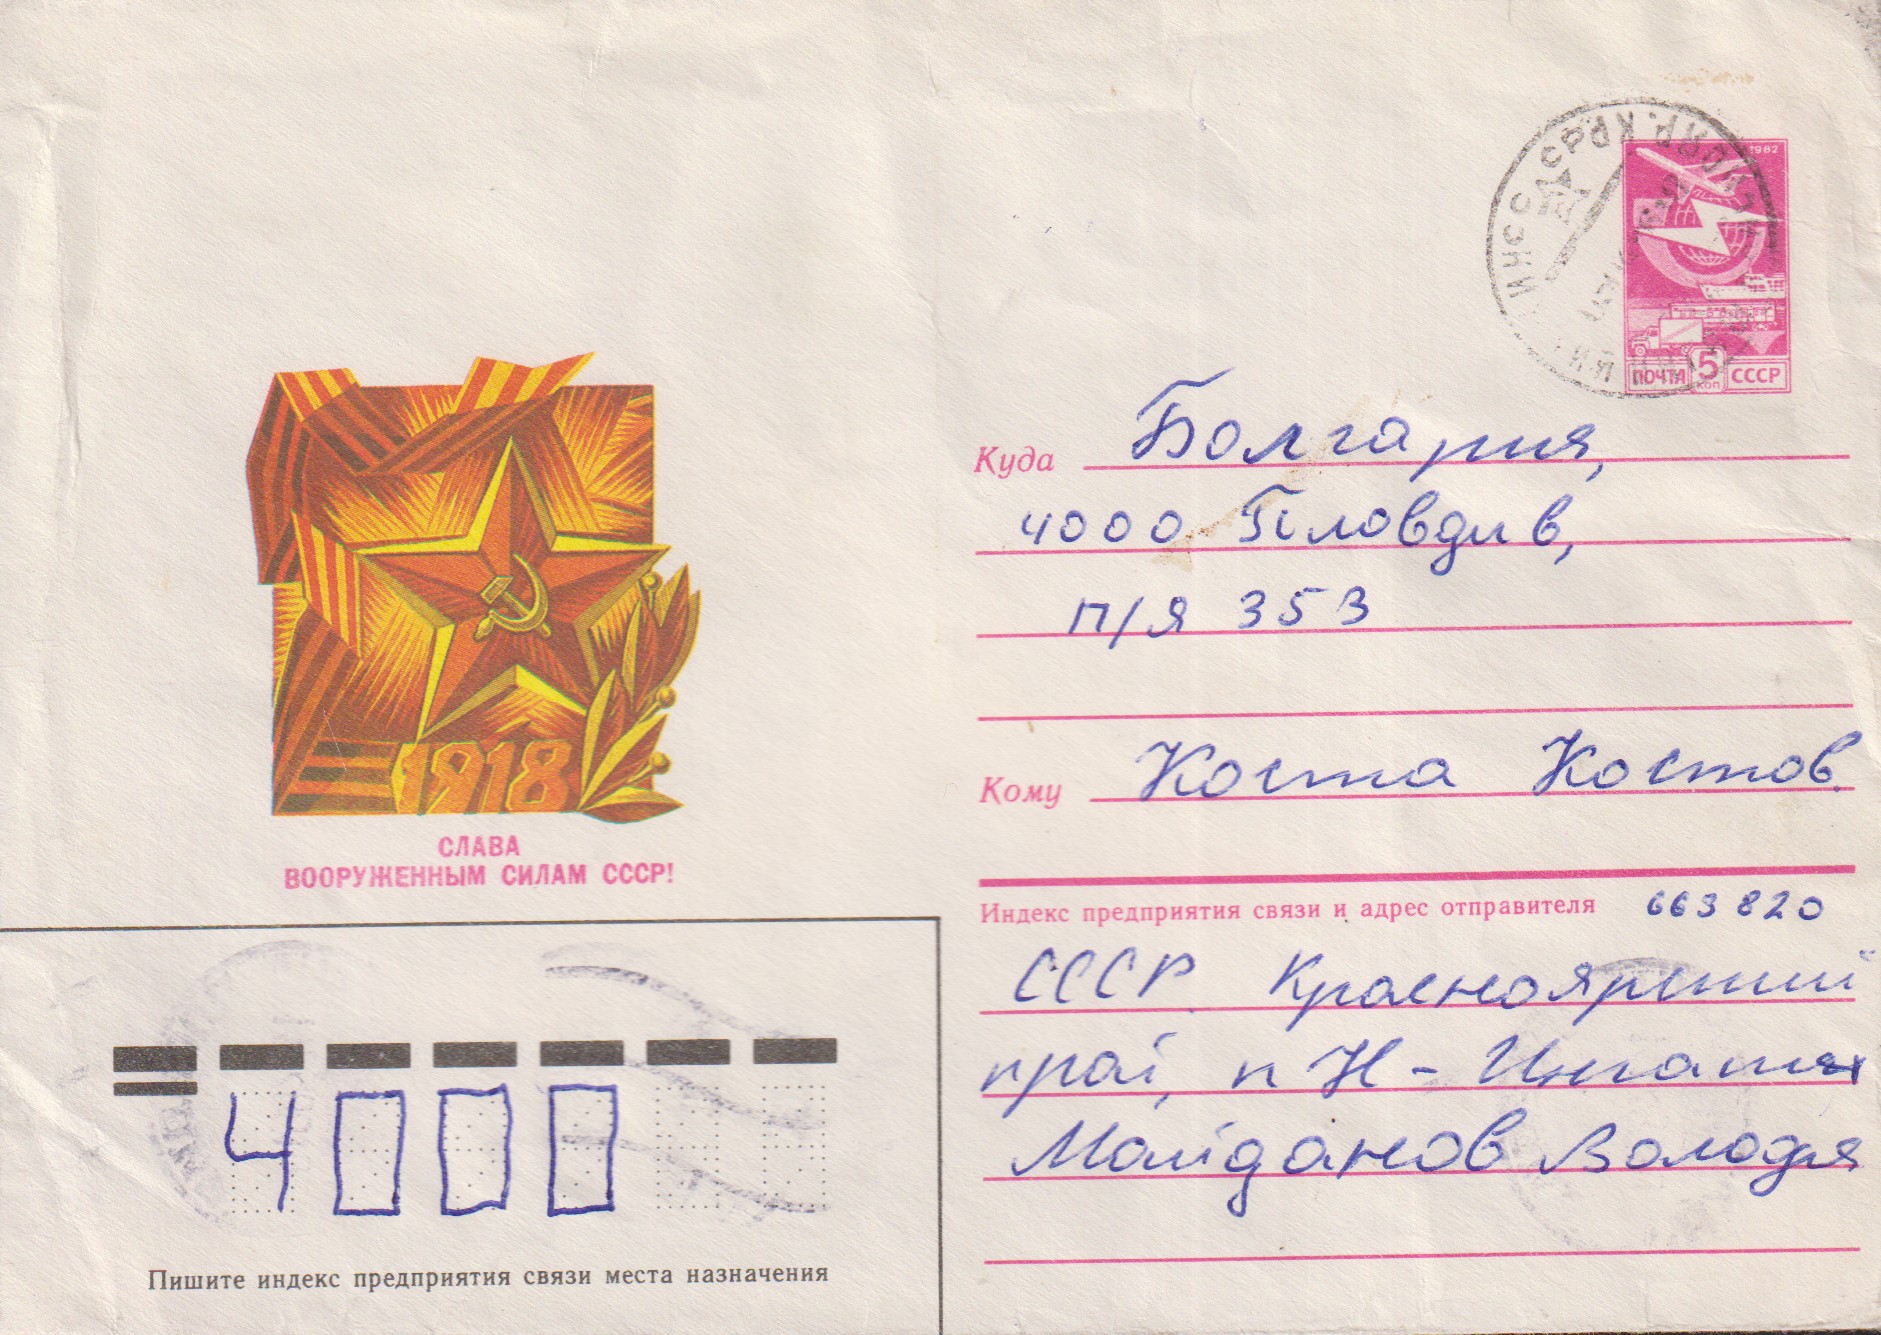 1982
ПОЧТА 5 КОП СССР
1918
СЛАВА
ВООРУЖЕННЫМ СИЛАМ СССР!
Куда Болгария,
4000 Пловдив,
п/я 353
Кому Коста Костов.
Индекс предприятия связи и адрес отправителя 663820
СССР Красноярский
край, п Н-Ингаш
Майданов Володя
4000
Пишите индекс предприятия связи места назначения